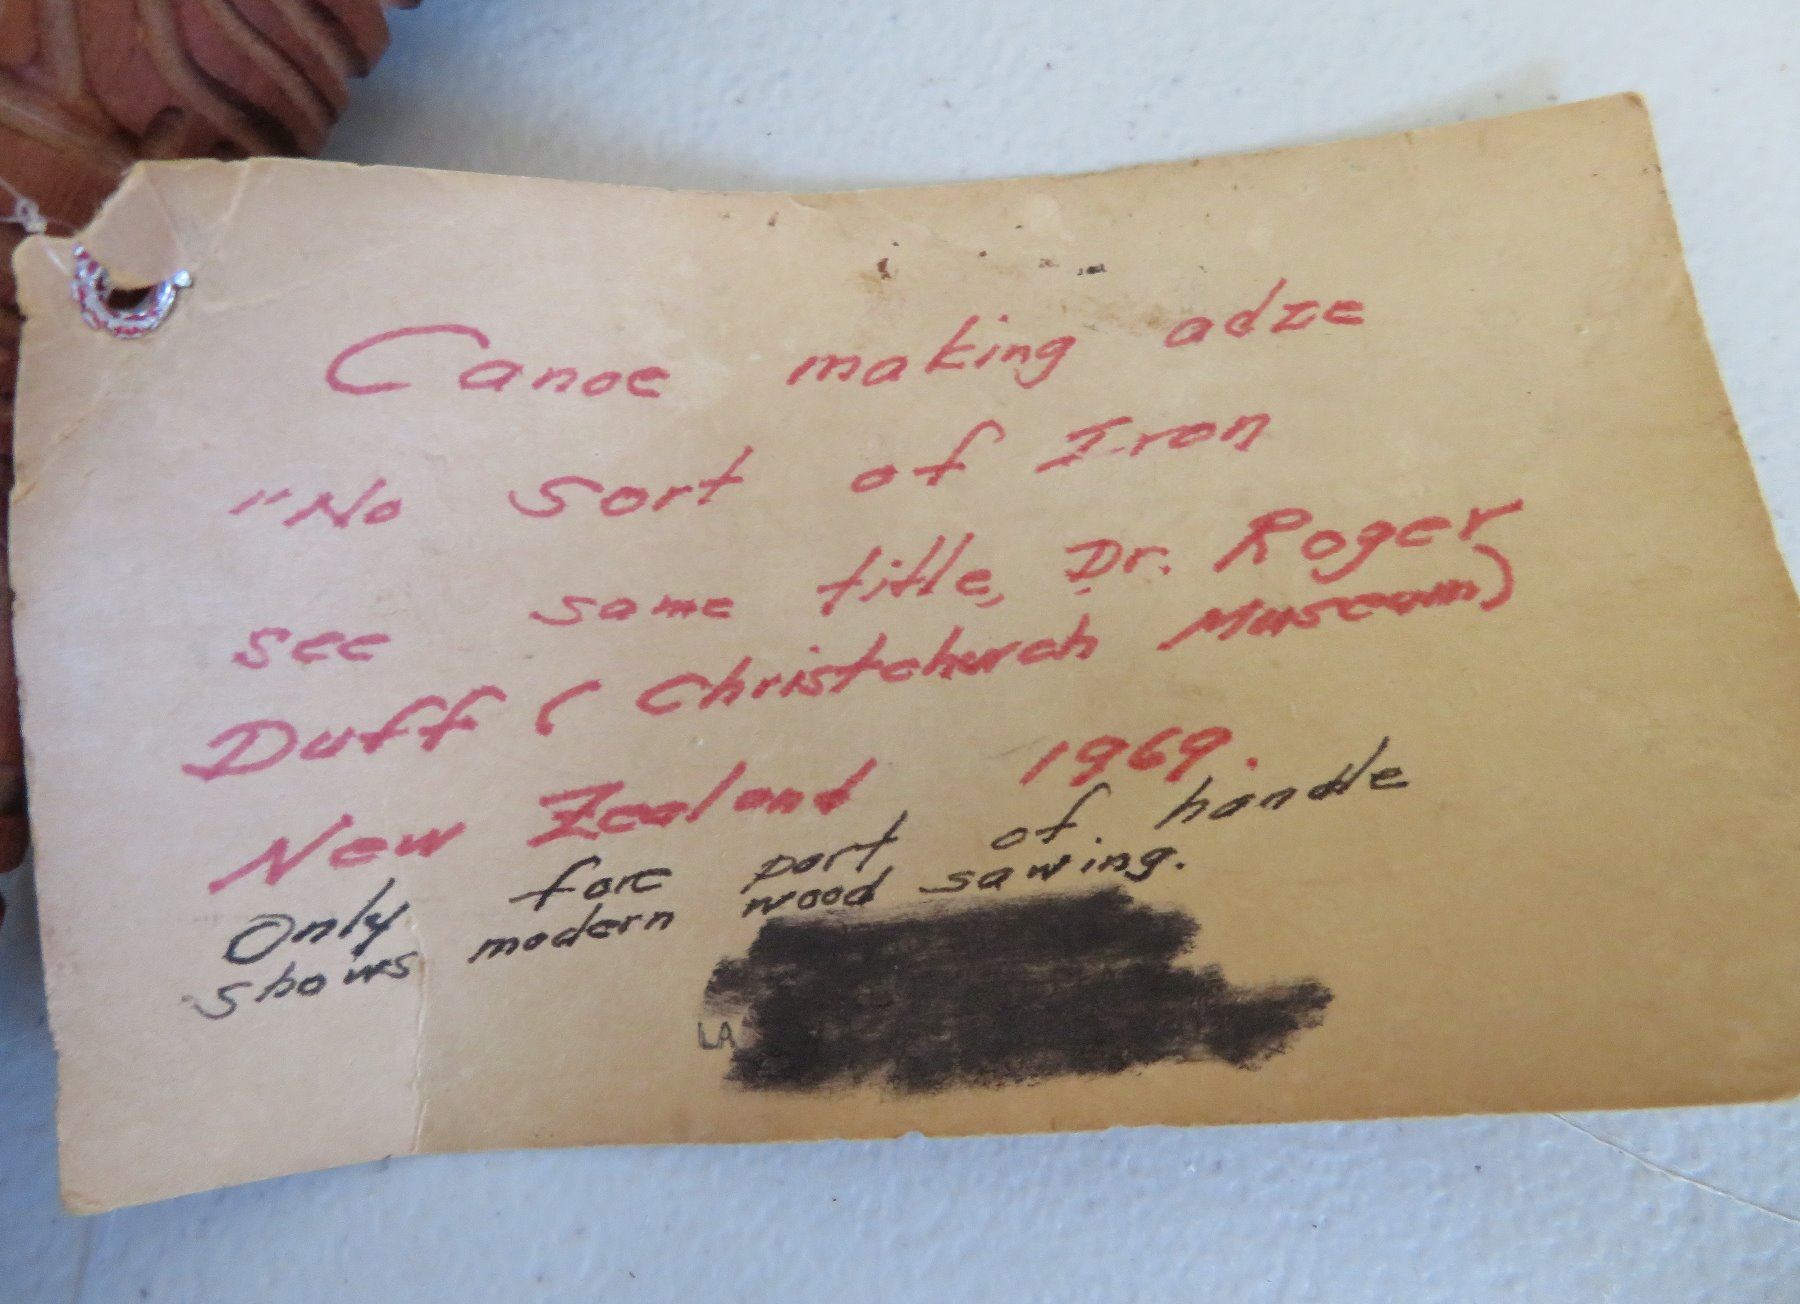 Canoe making adze
"No Sort of Iron
see same title, Dr. Roger
Duff ( Christchurch Museum)
New Zealand 1969.
Only fore part of handle
shows modern wood sawing.
LA